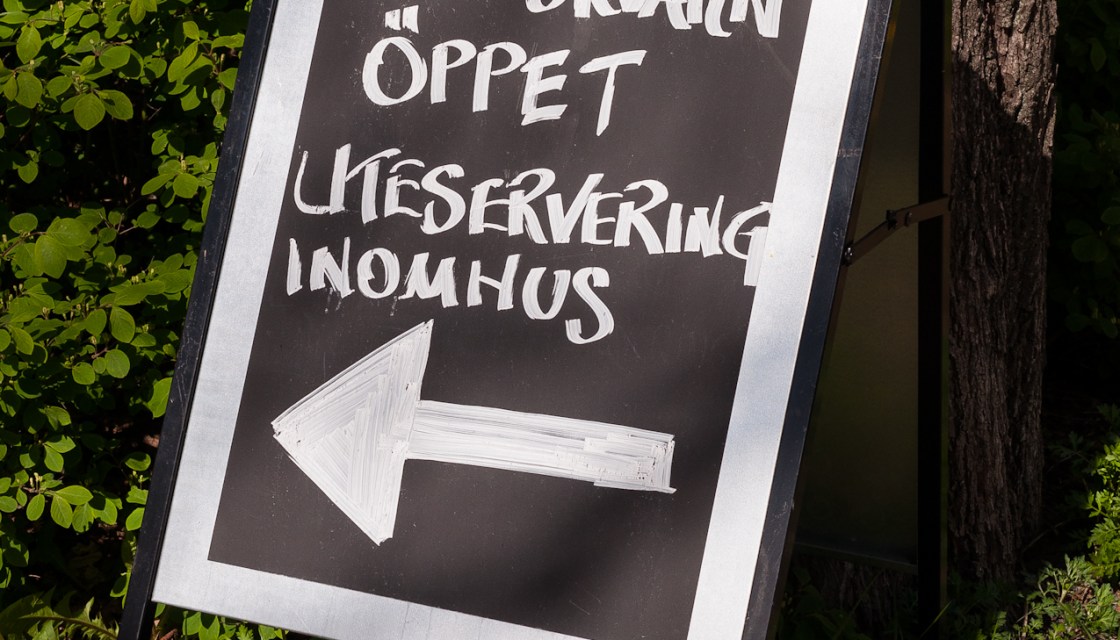 ÖPPET
UTESERVERING
INOMHUS